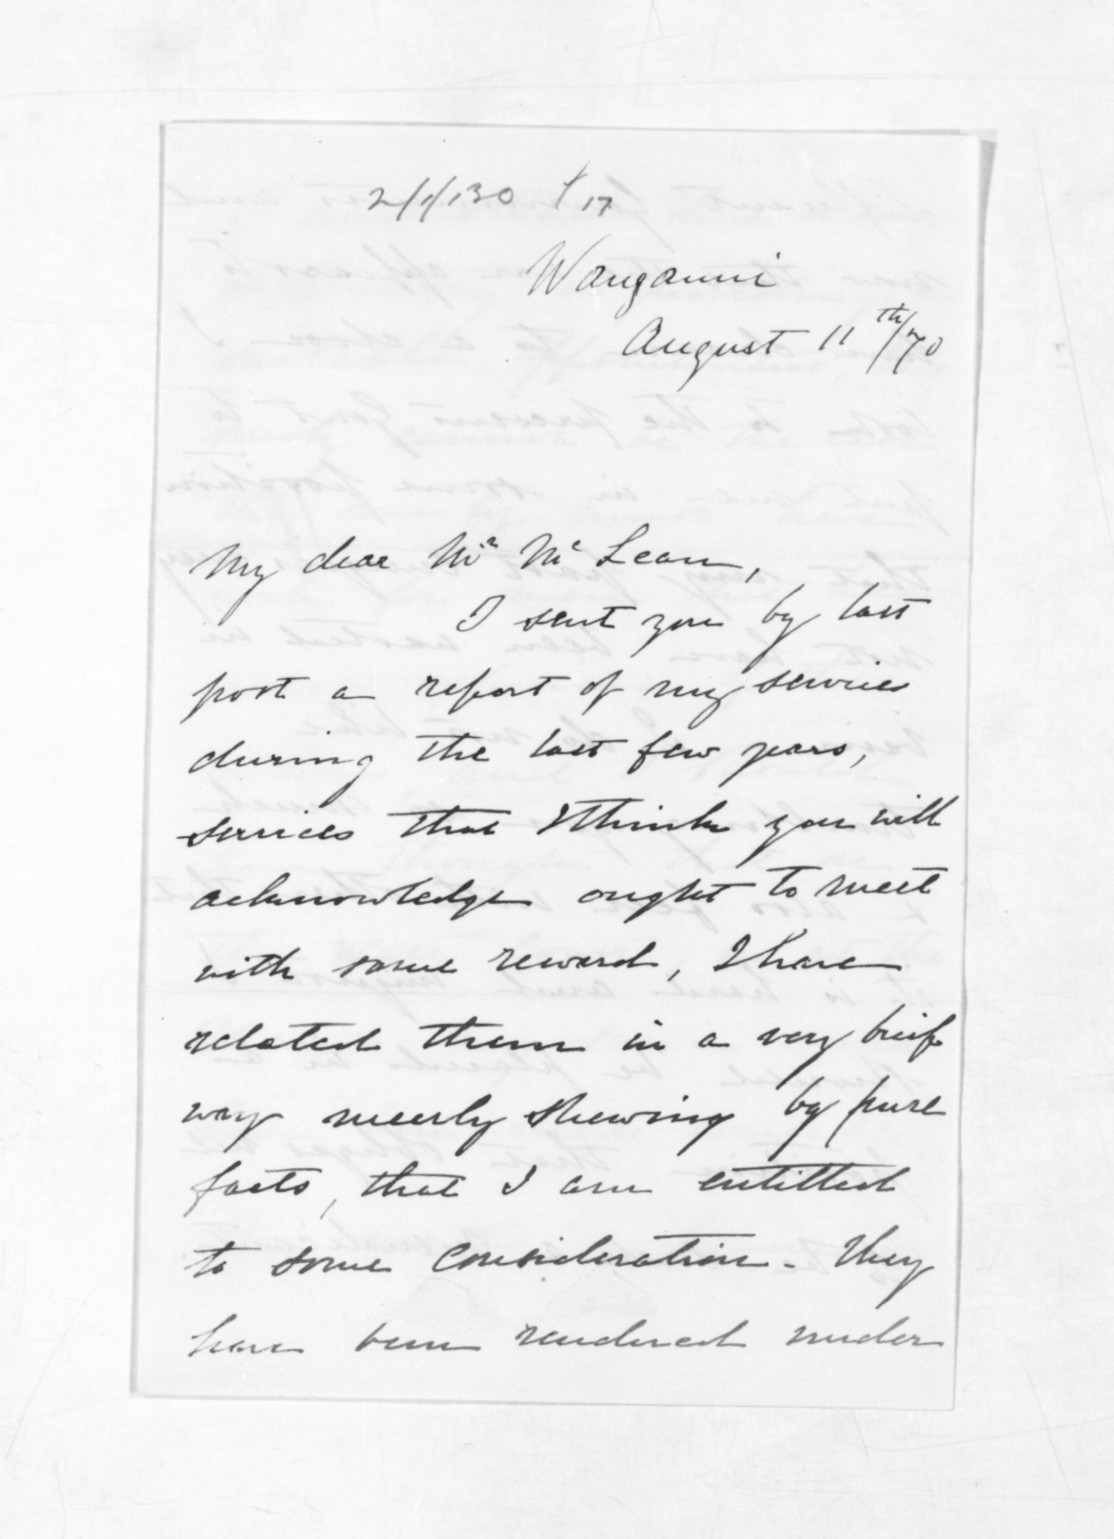 2/1/130 17
Wanganui
August 11th/70
My dear Mr McLean,
I sent you by last
post a report of my services
during the last few years,
services that I think you will
acknowledge ought to meet
with some reward, I have
related them in a very brief
way meerly shewing by pure
facts, that I am entitled
to some consideration. They
have been rendered under